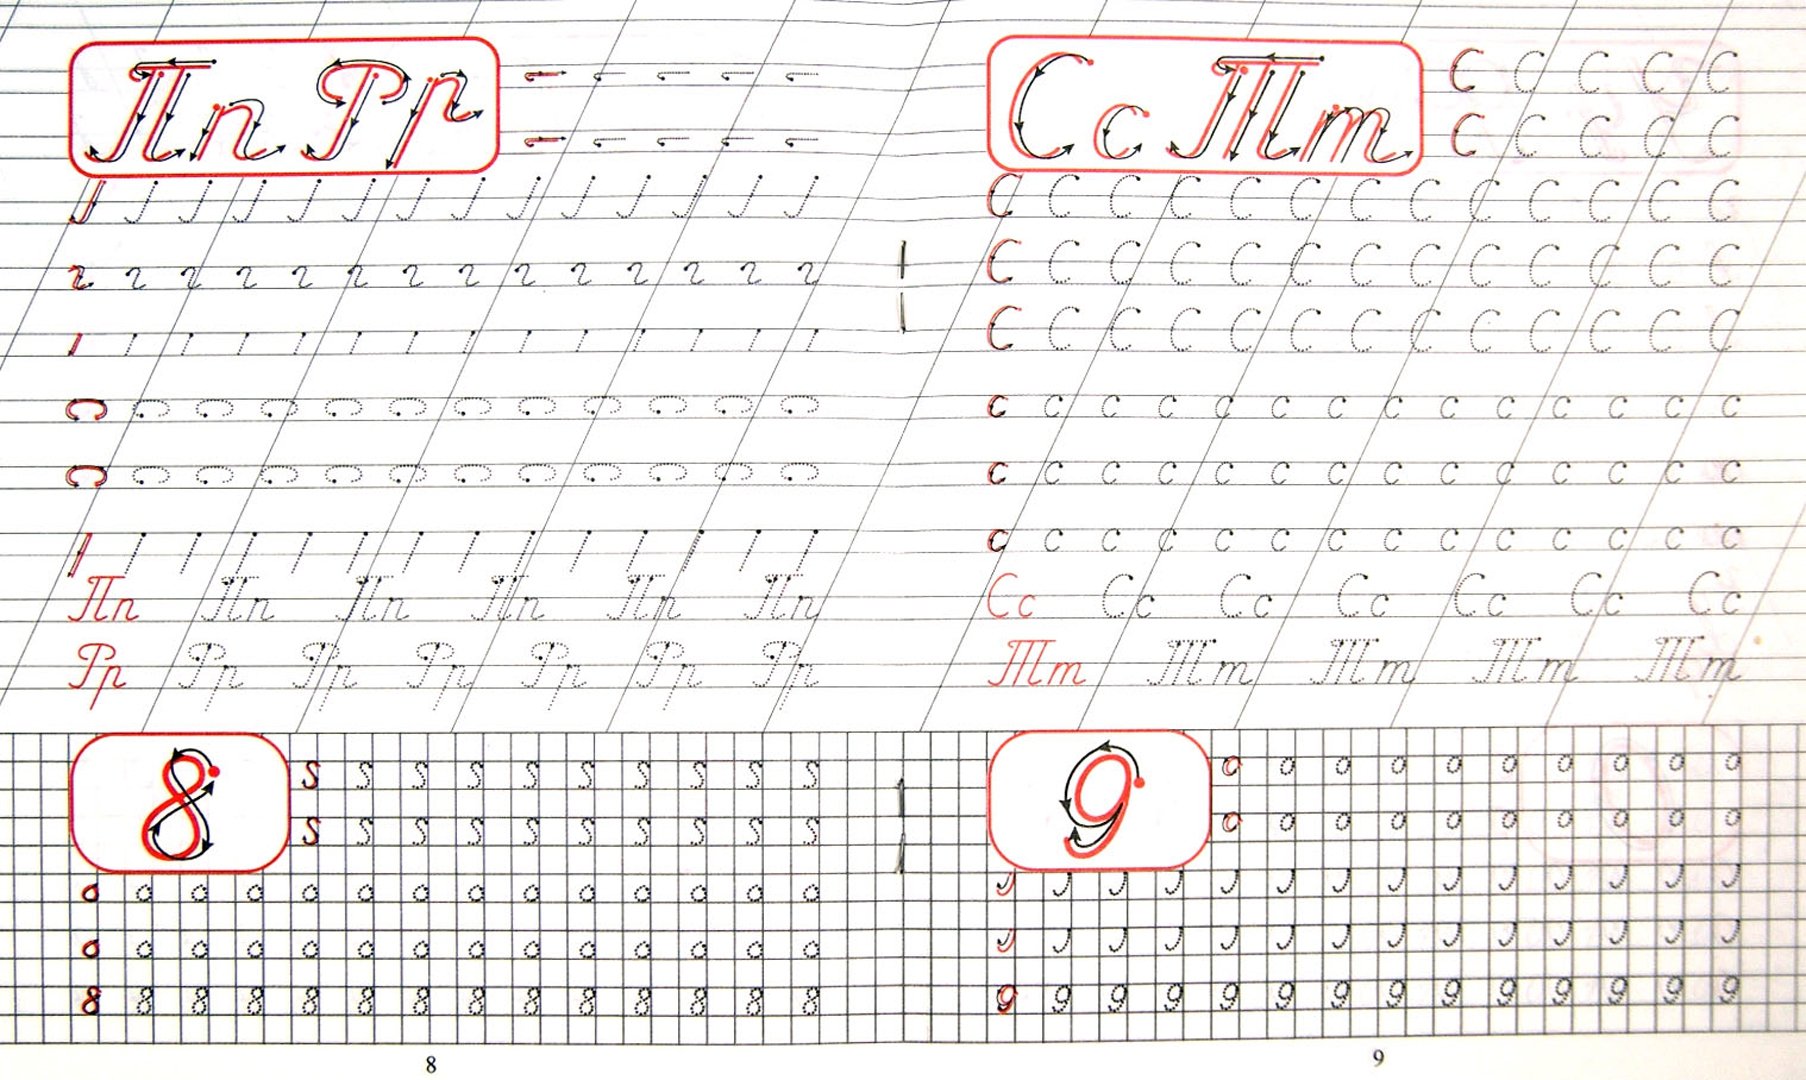 Пп Рр
Пп Пп Пп Пп Пп Пп
Рр Рр Рр Рр Рр Рр Рр
8
S S S S S S S S S S
S S S S S S S S S S
о о о о о о о о о о о о о о
о о о о о о о о о о о о о о
8 8 8 8 8 8 8 8 8 8 8 8 8 8
8
Сс Тт
С С С С С
С С С С С
С С С С С С С С С С С С С
С С С С С С С С С С С С С
С С С С С С С С С С С С С
с с с с с с с с с с с с с с
с с с с с с с с с с с с с с
с с с с с с с с с с с с с с
Сс Сс Сс Сс Сс Сс Сс
Тт Тт Тт Тт Тт
9
о о о о о о о о о о
о о о о о о о о о о
9 9 9 9 9 9 9 9 9 9 9 9 9 9
9